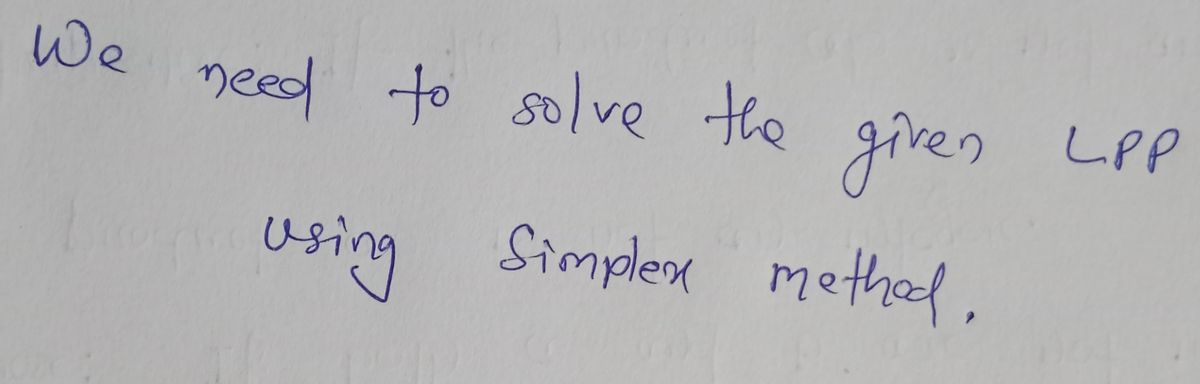 We need to solve the given LPP
using Simplex method.